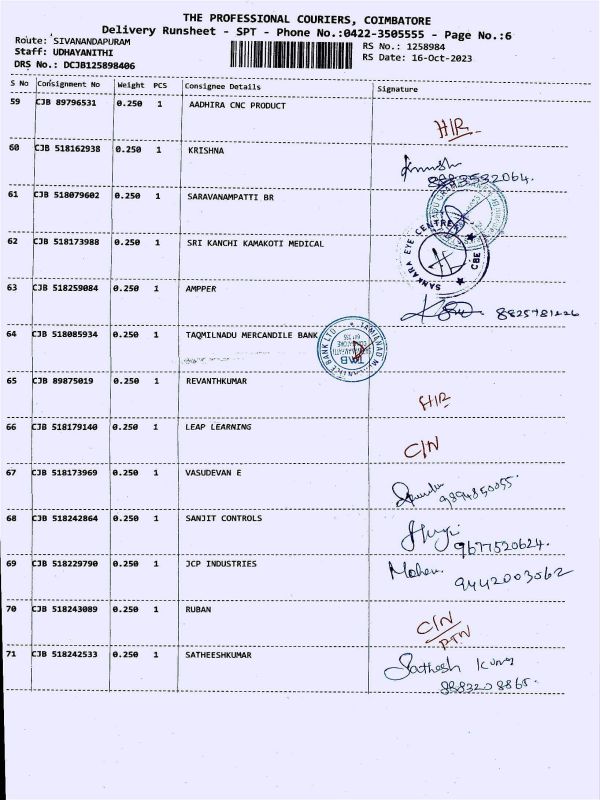 THE PROFESSIONAL COURIERS, COIMBATORE
Delivery Runsheet - SPT - Phone No.:0422-3505555 - Page No.:6
Route: SIVANANDAPURAM
Staff: UDHAYANITHI
DRS No.: DCJB125898406
RS No.: 1258984
RS Date: 16-Oct-2023
S No Consignment No Weight PCS Consignee Details Signature
59 CJB 89796531 0.250 1 AADHIRA CNC PRODUCT H/R
60 CJB 518162938 0.250 1 KRISHNA
61 CJB 518079602 0.250 1 SARAVANAMPATTI BR
62 CJB 518173988 0.250 1 SRI KANCHI KAMAKOTI MEDICAL SANKARA EYE CENTRE CBE
63 CJB 518259084 0.250 1 AMPPER
64 CJB 518085934 0.250 1 TAQMILNADU MERCANDILE BANK TMB
65 CJB 89875019 0.250 1 REVANTHKUMAR H/R
66 CJB 518179140 0.250 1 LEAP LEARNING C/N
67 CJB 518173969 0.250 1 VASUDEVAN E
9894850055.
68 CJB 518242864 0.250 1 SANJIT CONTROLS
9677520624.
69 CJB 518229790 0.250 1 JCP INDUSTRIES Mohan.
9442003562
70 CJB 518243089 0.250 1 RUBAN C/N
RTN
71 CJB 518242533 0.250 1 SATHEESHKUMAR Sathesh Kumar
8883208865.